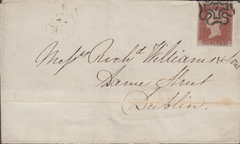 Messrs Richd Williams & Sons
Dame Street
Dublin.